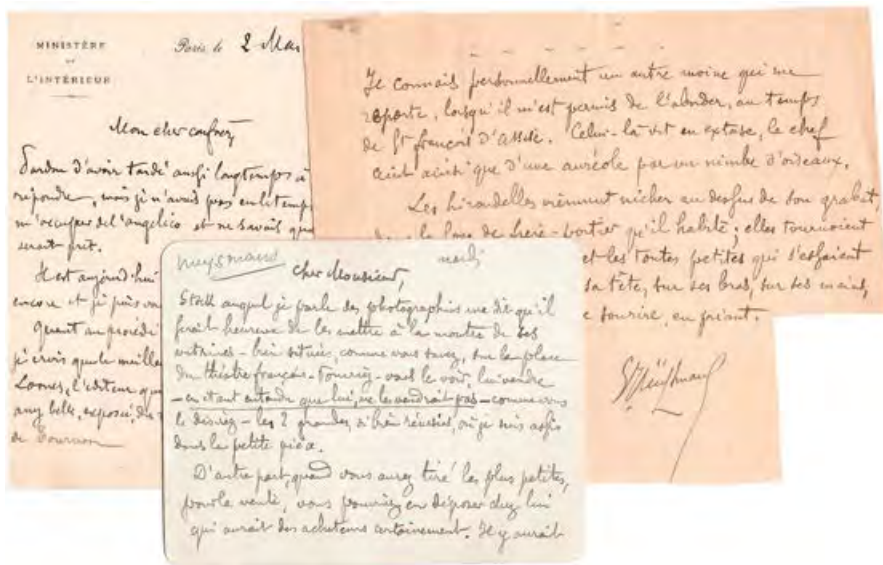 MINISTÈRE
DE
L'INTÉRIEUR
Paris, le 2 Mai
Mon cher confrère
Pardon d'avoir tardé aussi longtemps à
répondre, mais je n'avais pas eu le temps
m'occuper de l'angelico et ne savais
serait prêt.
Il est aujourd'hui
encore et je puis
Quant au procédé
je crois que le
l'éditeur
exposée,
de Tournon
Je connais personnellement un autre moine qui me
reporte, lorsqu'il m'est permis de l'aborder, au temps
de St françois d'Assise. Celui-là vit en extase, le chef
ceint ainsi que d'une auréole par un nimbe d'oiseaux.
Les hirondelles viennent nicher au dessus de son grabat,
dans la loge de frère-portier qu'il habite; elles tournoient
et les toutes petites qui s'essaient
sa tête, sur ses bras, sur ses mains,
sourire, en priant.
Huysmans
mardi
Cher Monsieur,
Stock auquel je parle des photographies me dit qu'il
serait heureux de les mettre à la montre de ses
vitrines - bien situées, comme vous savez, sur la place
du théâtre français - Pourriez-vous le voir, lui vendre
- en étant entendu que lui, ne les vendrait pas - comme vous
le désirez - les 2 grandes, si bien réussies, où je suis assis
dans la petite pièce.
D'autre part, quand vous aurez tiré les plus petites,
pour la vente, vous pourriez en déposer chez lui
qui aurait des acheteurs certainement. Il y aurait